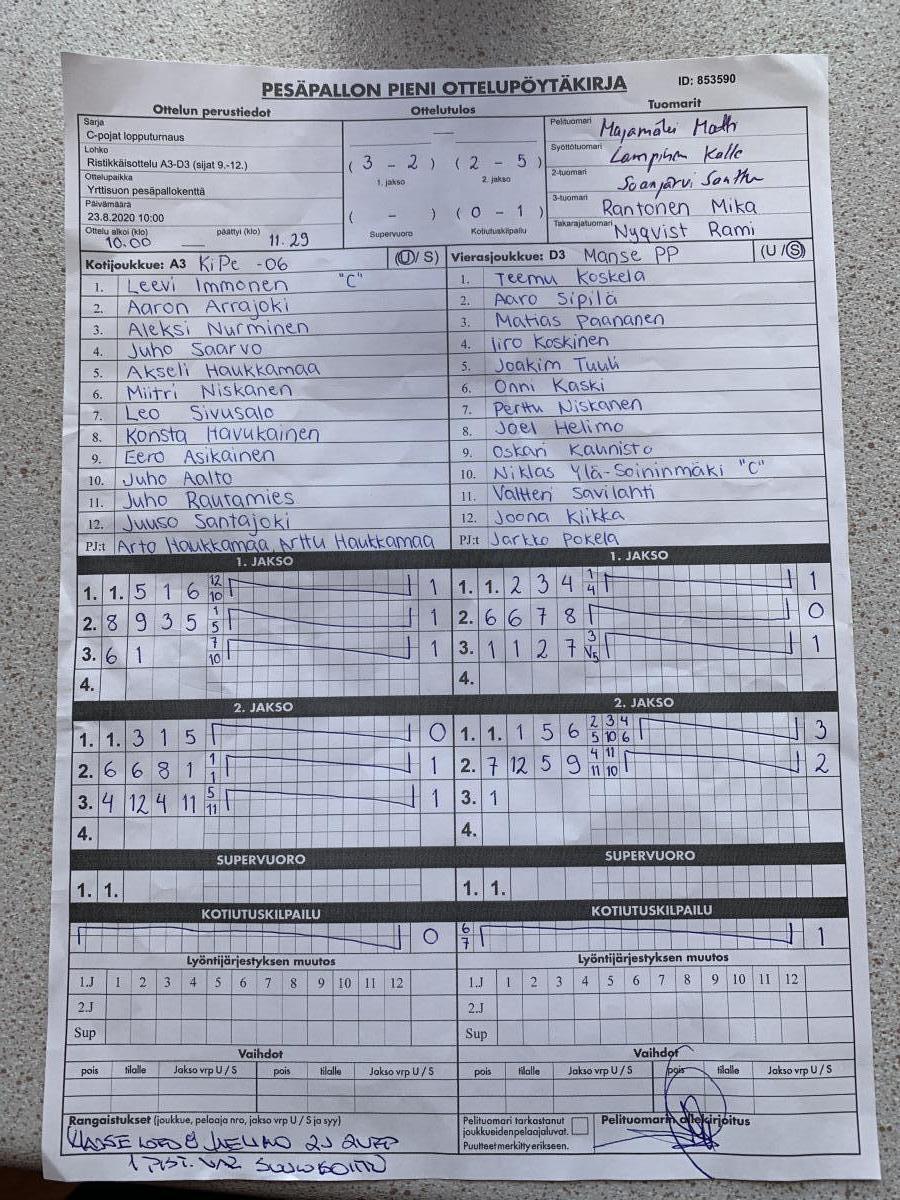 PESÄPALLON PIENI OTTELUPÖYTÄKIRJA ID: 853590
Ottelun perustiedot Ottelutulos Tuomarit
Sarja
C-pojat lopputurnaus
Lohko
Ristikkäisottelu A3-D3 (sijat 9.-12.)
Ottelupaikka
Yrttisuon pesäpallokenttä
Päivämäärä
23.8.2020 10:00
Ottelu alkoi (klo) 10.00 — päättyi (klo) 11.29
—
( 3 - 2 ) ( 2 - 5 )
1. jakso 2. jakso
( - ) ( 0 - 1 )
Supervuoro Kotiutuskilpailu
Pelituomari Majamäki
Syöttötuomari Lampinen Kalle
2-tuomari
3-tuomari Rantonen Mika
Takarajatuomari Nyqvist Rami
Kotijoukkue: A3 KiPe -06 (U/ S)
1. Leevi Immonen "C"
2. Aaron Arrajoki
3. Aleksi Nurminen
4. Juho Saarvo
5. Akseli Haukkamaa
6. Miitri Niskanen
7. Leo Sivusalo
8. Konsta Havukainen
9. Eero Asikainen
10. Juho Aalto
11. Juho Rautamies
12. Juuso Santajoki
PJ:t Arto Haukkamaa, Arttu Haukkamaa
Vierasjoukkue: D3 Manse PP (U /S)
1. Teemu Koskela
2. Aaro Sipilä
3. Matias Paananen
4. Iiro Koskinen
5. Joakim Tuuli
6. Onni Kaski
7. Perttu Niskanen
8. Joel Helimo
9. Oskari Kaunisto
10. Niklas Ylä-Soininmäki "C"
11. Valtteri Savilahti
12. Joona Kiikka
PJ:t Jarkko Pokela
1. JAKSO
1. 1. 5 1 6 12 10 1
2. 8 9 3 5 1 5 1
3. 6 1 7 10 1
4.
1. JAKSO
1. 1. 2 3 4 1 4 1
2. 6 6 7 8 0
3. 1 1 2 7 3 V5 1
4.
2. JAKSO
1. 1. 3 1 5 0
2. 6 6 8 1 1 1 1
3. 4 12 4 11 5 11 1
4.
2. JAKSO
1. 1. 1 5 6 2 3 4 5 10 6 3
2. 7 12 5 9 4 11 11 10 2
3. 1
4.
SUPERVUORO SUPERVUORO
1. 1. 1. 1.
KOTIUTUSKILPAILU KOTIUTUSKILPAILU
0 6 7 1
Lyöntijärjestyksen muutos Lyöntijärjestyksen muutos
1.J 1 2 3 4 5 6 7 8 9 10 11 12 1.J 1 2 3 4 5 6 7 8 9 10 11 12
2.J 2.J
Sup Sup
Vaihdot Vaihdot
pois tilalle Jakso vrp U / S pois tilalle Jakso vrp U / S pois tilalle Jakso vrp U / S pois tilalle Jakso vrp U / S
Rangaistukset (joukkue, pelaaja nro, jakso vrp U / S ja syy)
8 2J
1
Pelituomari tarkastanut
joukkueidenpelaajaluvat.
Puutteet merkitty erikseen.
Pelituomarin allekirjoitus